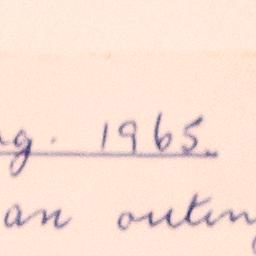 ug. 1965.
an outing